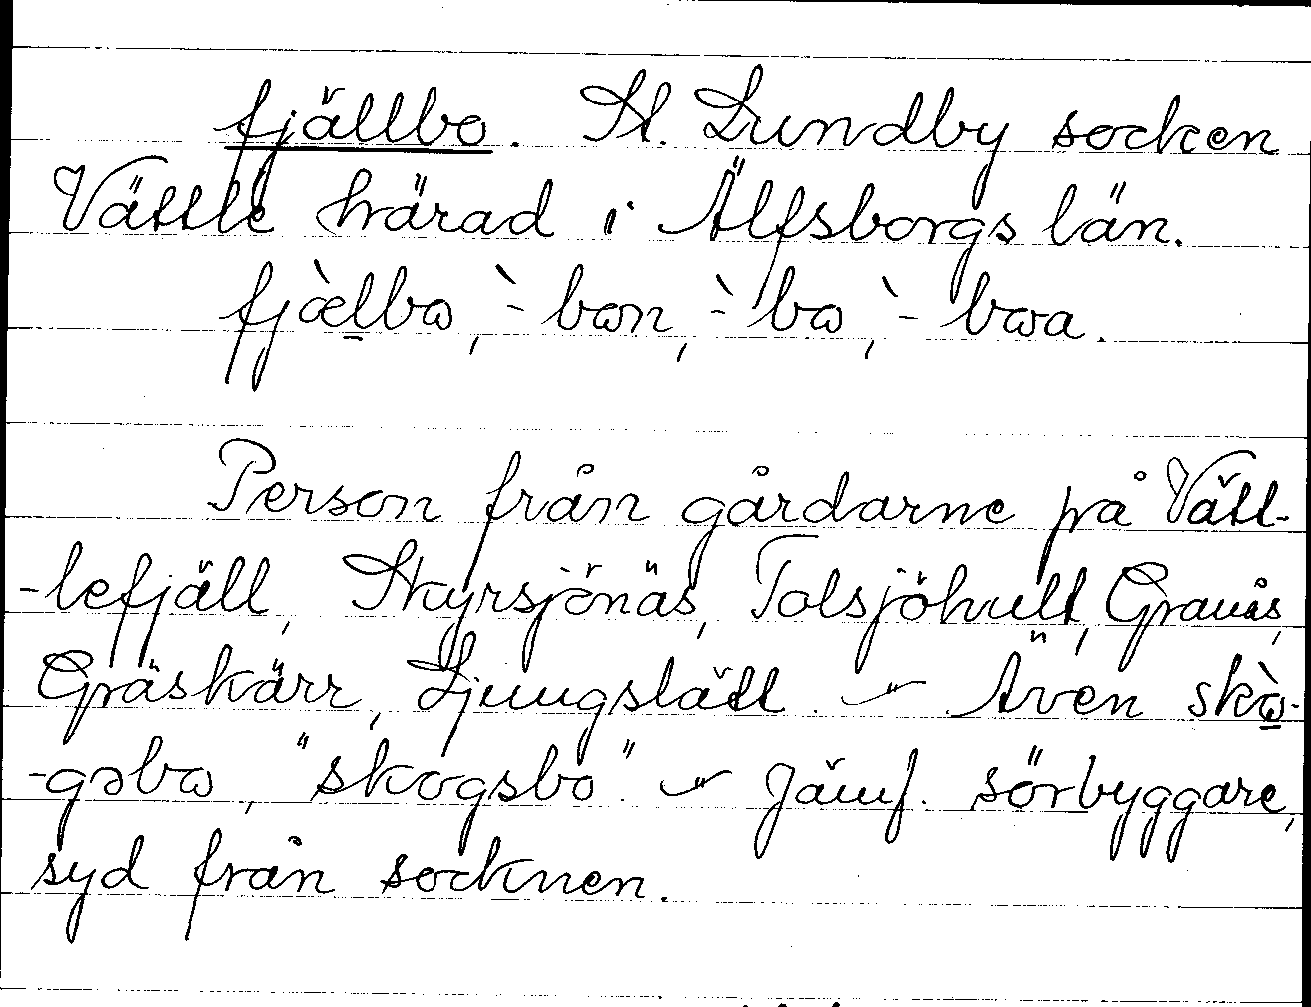 fjällbo. St. Lundby socken
Vättle härad i Älfsborgs län.
fjæ̀lbɷ, `-bɷn, `-bɷ, `-bɷa.
Person från gårdarne på Vätt-
-lefjäll, Skyrsjönäs, Tolsjöhult, Graués,
Gräskärr, Ljungslätt. – Även skɷ̀-
-gəbɷ, "skogsbo" – Jämf. sörbyggare,
syd från socknen.